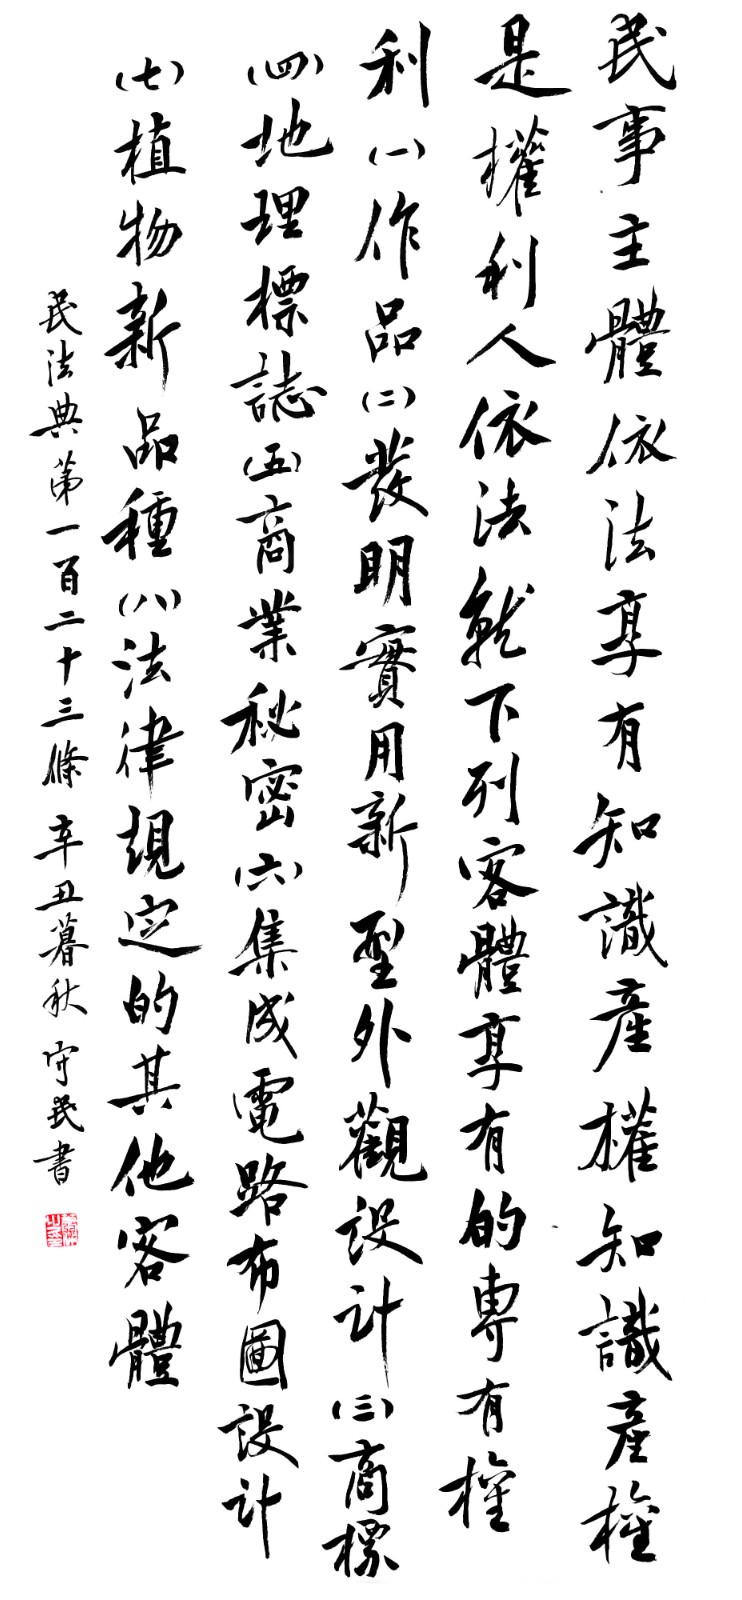 民事主體依法享有知識產權知識產權
是權利人依法就下列客體享有的專有權
利(一)作品(二)發明實用新型外觀設計(三)商標
(四)地理標誌(五)商業秘密(六)集成電路布圖設計
(七)植物新品種(八)法律規定的其他客體
民法典第一百二十三條 辛丑暮秋 守民書